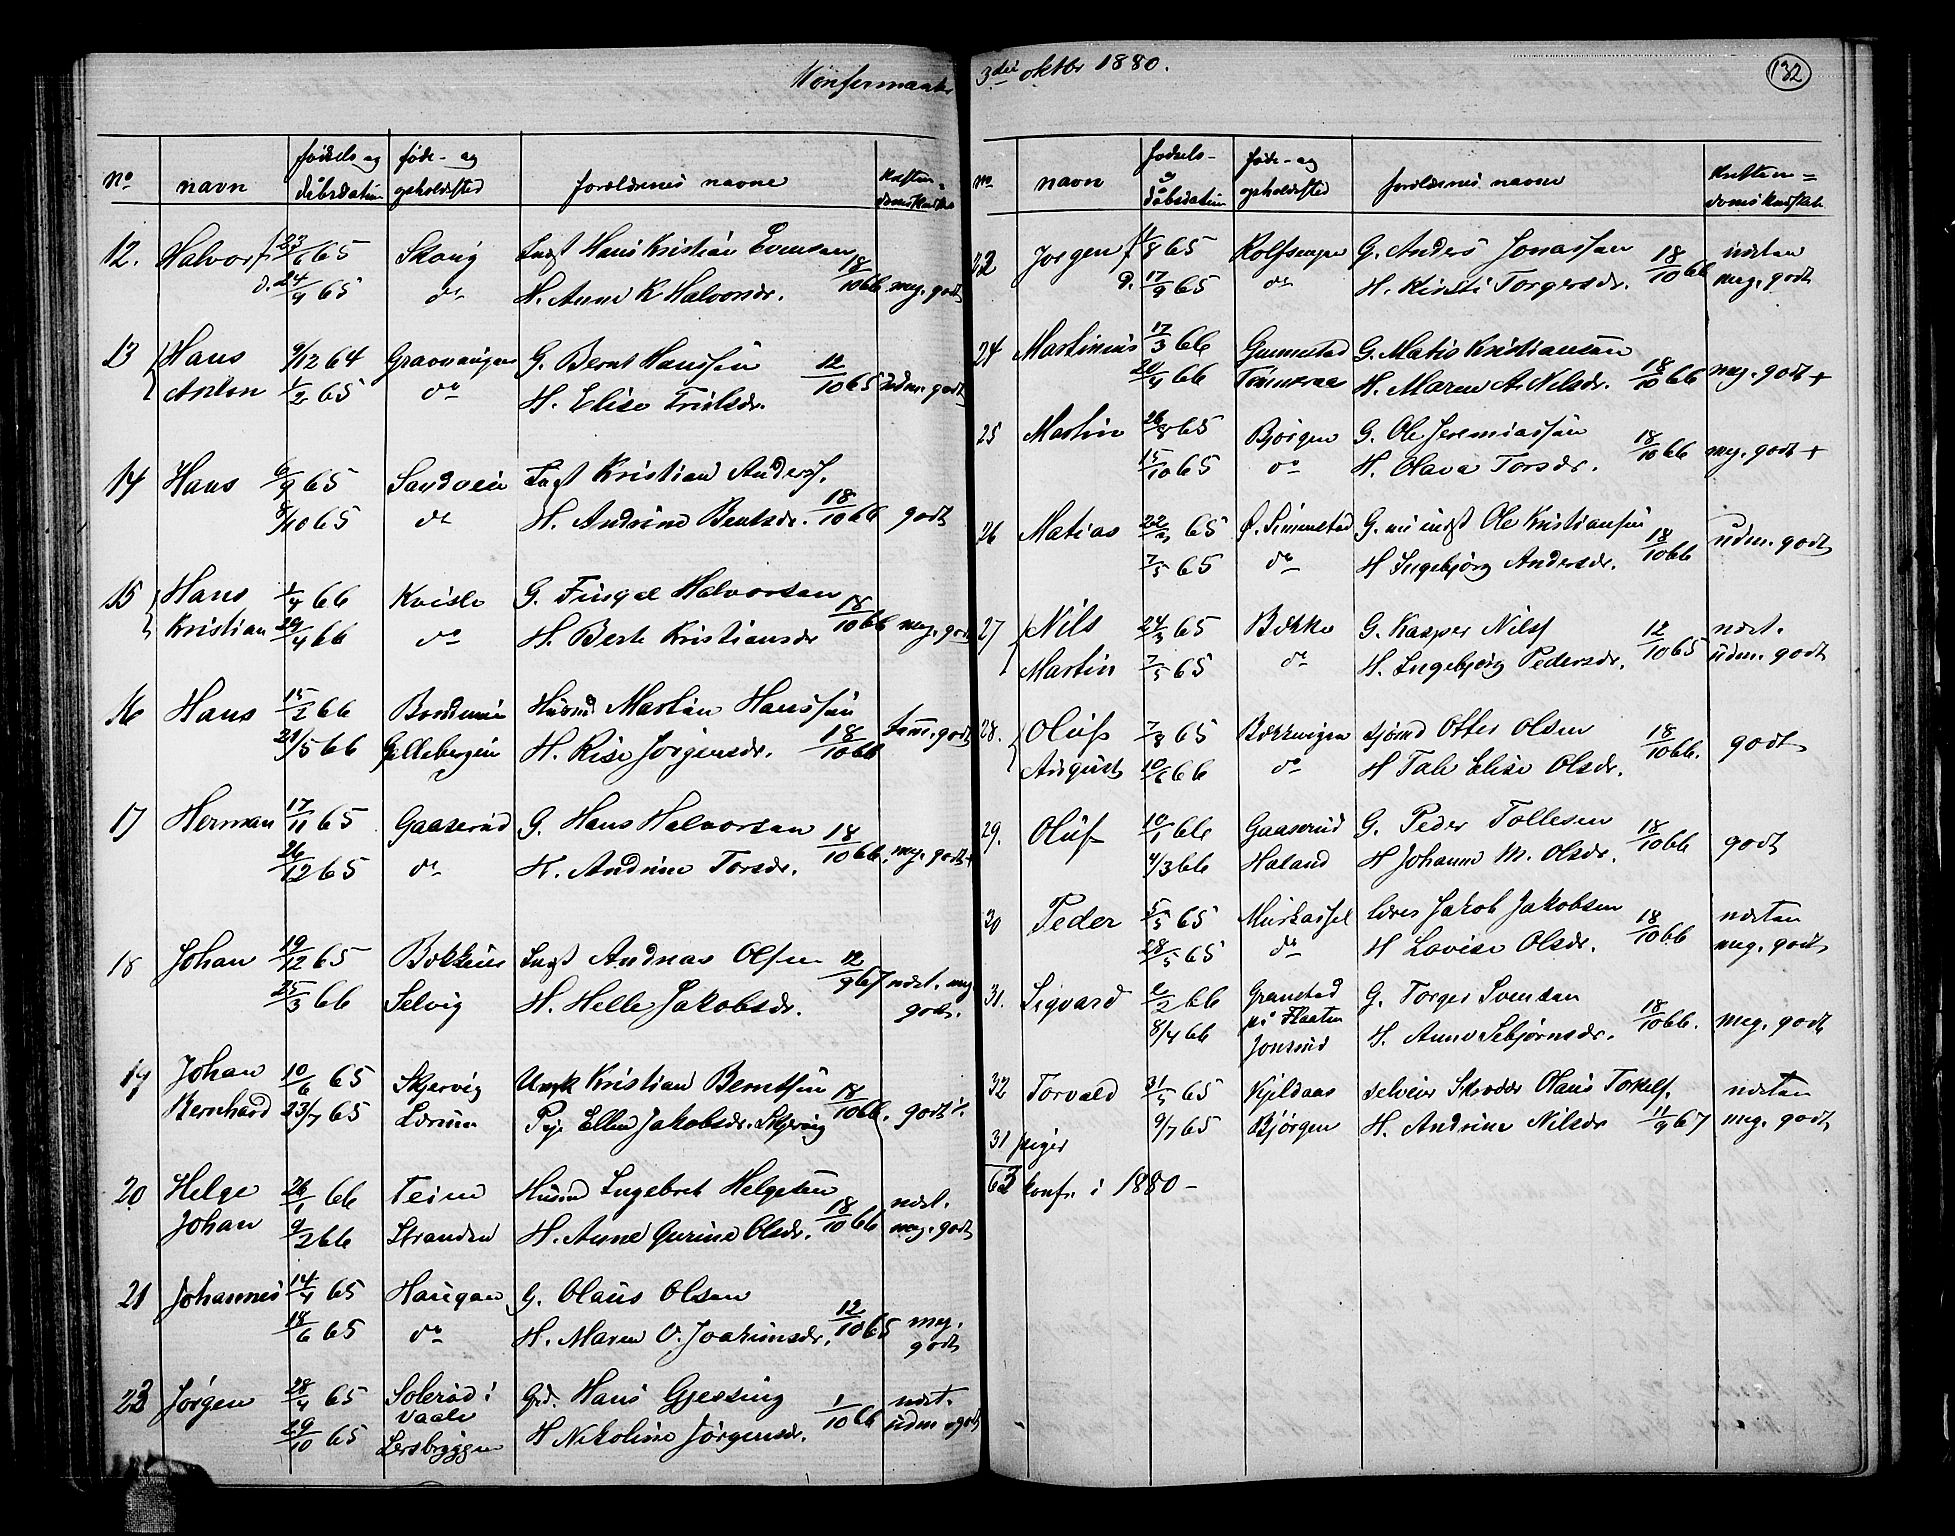 Konfirmanter
no navn fødsels og dåbsdatum føde- og opholdssted forældrenes navne kristen= domskundskab
12. Halvor f. 23/6 65 Skoug Inst Hans Kristian Evensen 18/10 66 meg. godt
d. 24/9 65 do H. Anne K Halvorsdr.
13 Hans 9/12 64 Graavangen G. Bernt Hanssen 12/10 65 udm. godt
Anton 1/2 65 do H. Elise
14 Hans 6/9 65 Sandvein Inst Kristian Anders. 18/10 66 godt
8/10 65 do H. Andrine Bentsdr.
15 Hans 1/4 66 Kvisle G. Fingal Halvorsen 18/10 66 meg. godt
Kristian 29/4 66 do H. Berte Kristiansdr
16 Hans 15/2 66 Husmd Martin Hanssen 18/10 66 godt
21/5 66 Gellebergen H. Rise Jørgensdr.
17 Herman 17/11 65 Gaaserud G. Hans Halvorsen 18/10 66. meg. godt +
26/12 65 do H. Andrine Torsdr.
18 Johan 19/12 65 Inst Andreas Olsen 12/9 67 næst. meg
25/3 66 Selvig H. Helle Jakobsdr. godt.
19 Johan 10/6 65 Skjervig Umk Kristian Berntsen 18/10 66. godt
Bernhard 23/7 65 Pige Ellen Jakobsdr. Skjervig
20 Helge 26/1 66 Teine Husmd Ingebret Helgesen 18/10 66 næst.
Johan 9/2 66 Stranden H. Anne Gurine Olsdr. meg. godt
21 Johannes 14/4 65 Haugan G. Olaus Olsen 12/10 65 meg.
18/6 65 do H. Maren O. Joakimsdr. godt
22 Jørgen 28/4 65 Solerød i Vaale Grd. Hans Gjessing 1/10 66 næst.
29/10 65 Lersbryggen H Nikoline Jørgensdr. udm godt
3die oktbr 1880.
132
no navn fødsels- og dåbsdatum føde- og opholdssted forældrenes navne kristen= domskundskab
23 Jørgen f 1/8 65 G. Anders Jonassen 18/10 66 næsten
d. 17/9 65 do H. Kirsti Torgersdr. meg. godt
24 Martinius 17/3 66 Gunnestad G. Matis Kristiansen 18/10 66 meg. godt +
20/4 66 Tømmeraas H. Maren A. Nilsdr.
25 Martin 26/8 65 Bjørgen G. Ole Jeremiassen 18/10 66 meg. godt +
15/10 65 do H. Olava Torsdr.
26 Matias 22/2 65 Ø. Simenstad G. nu indst Ole Kristiansen 18/10 66 udm. godt
7/5 65 do H Ingebjørg Andersdr.
27 Nils 24/3 65 Bekke G. Kasper Nils. 12/10 65 næst.
Martin 7/5 65 do H. Ingebjørg Pedersdr. udm. godt
28. Oluf 7/8 65 Bekkevigen sjømd Otter Olsen 18/10 66. godt
August 10/6 66 do H Tale Elise Olsdr.
29. Oluf 10/1 66 Gaaserud G. Peder Tollesen 18/10 66 godt
4/3 66 Haland H Johanne M. Olsdr.
30 Peder 5/5 65 Jakob Jakobsen 18/10 66 næsten
28/5 65 do H Lovise Olsdr. meg. godt
31. Sigvard 2/2 66 Granstad på Flaaten G. Torger Svendsen 18/10 66. meg. godt
8/4 66 Jonsrud H. Anne Sebjørnsdr.
32 Torvald 31/5 65 Kjeldaas selveier Skredder Olaus Torkels. 11/9 67 næsten
9/7 65 Bjørgen H. Andrine Nilsdr meg. godt
31 piger
63 konf. i 1880 -